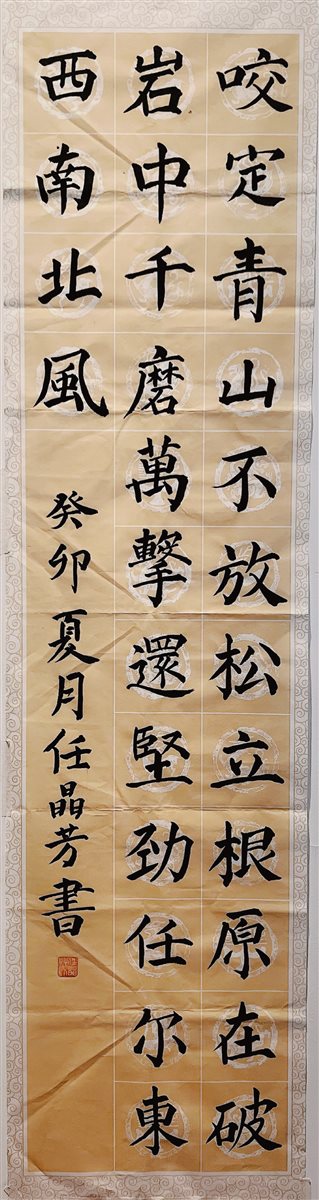 咬定青山不放松立根原在破
岩中千磨萬擊還堅劲任尔東
西南北風
癸卯夏月任晶芳書